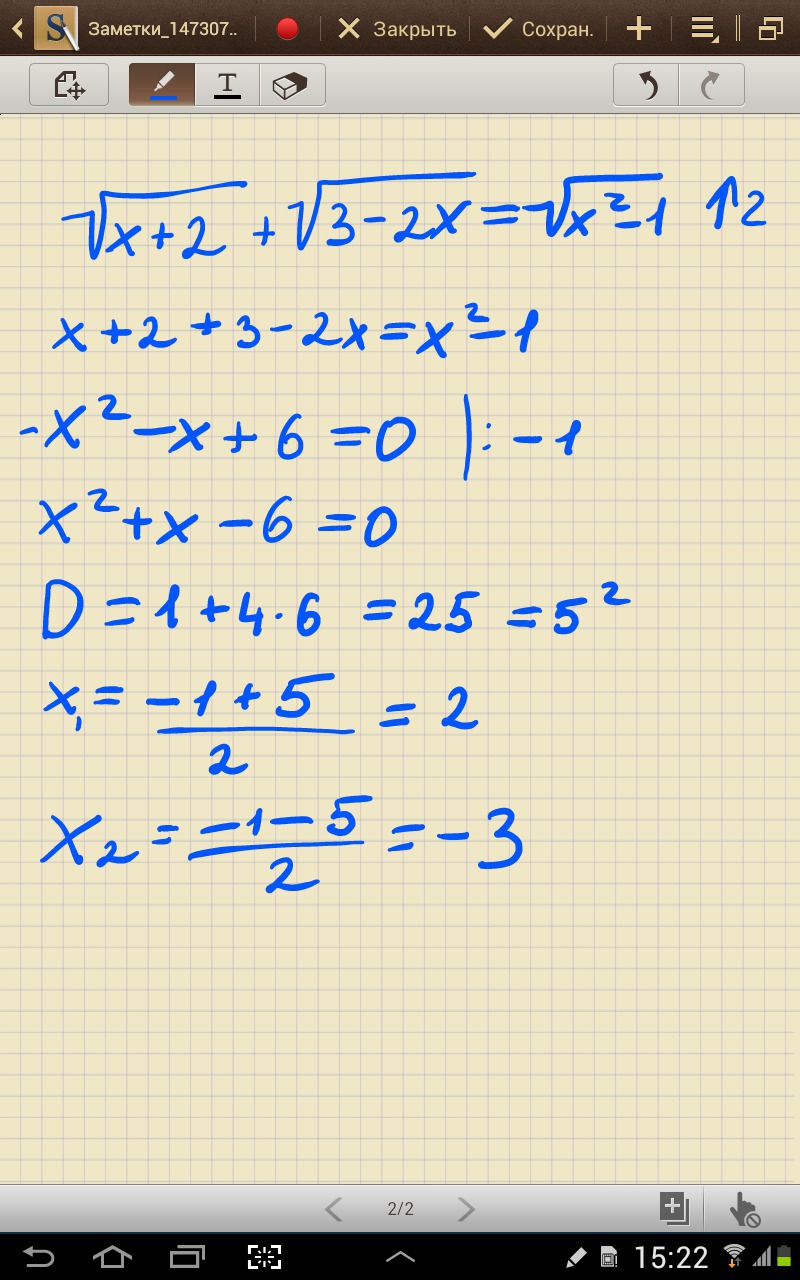 Заметки_147307.. Закрыть Сохран.
T
√(x+2) + √(3-2x) = √(x²-1) ↑2
x+2+3-2x=x²-1
-x²-x+6=0 |:-1
x²+x-6=0
D=1+4·6=25=5²
x₁=(-1+5)/2=2
x₂=(-1-5)/2=-3
2/2
15:22